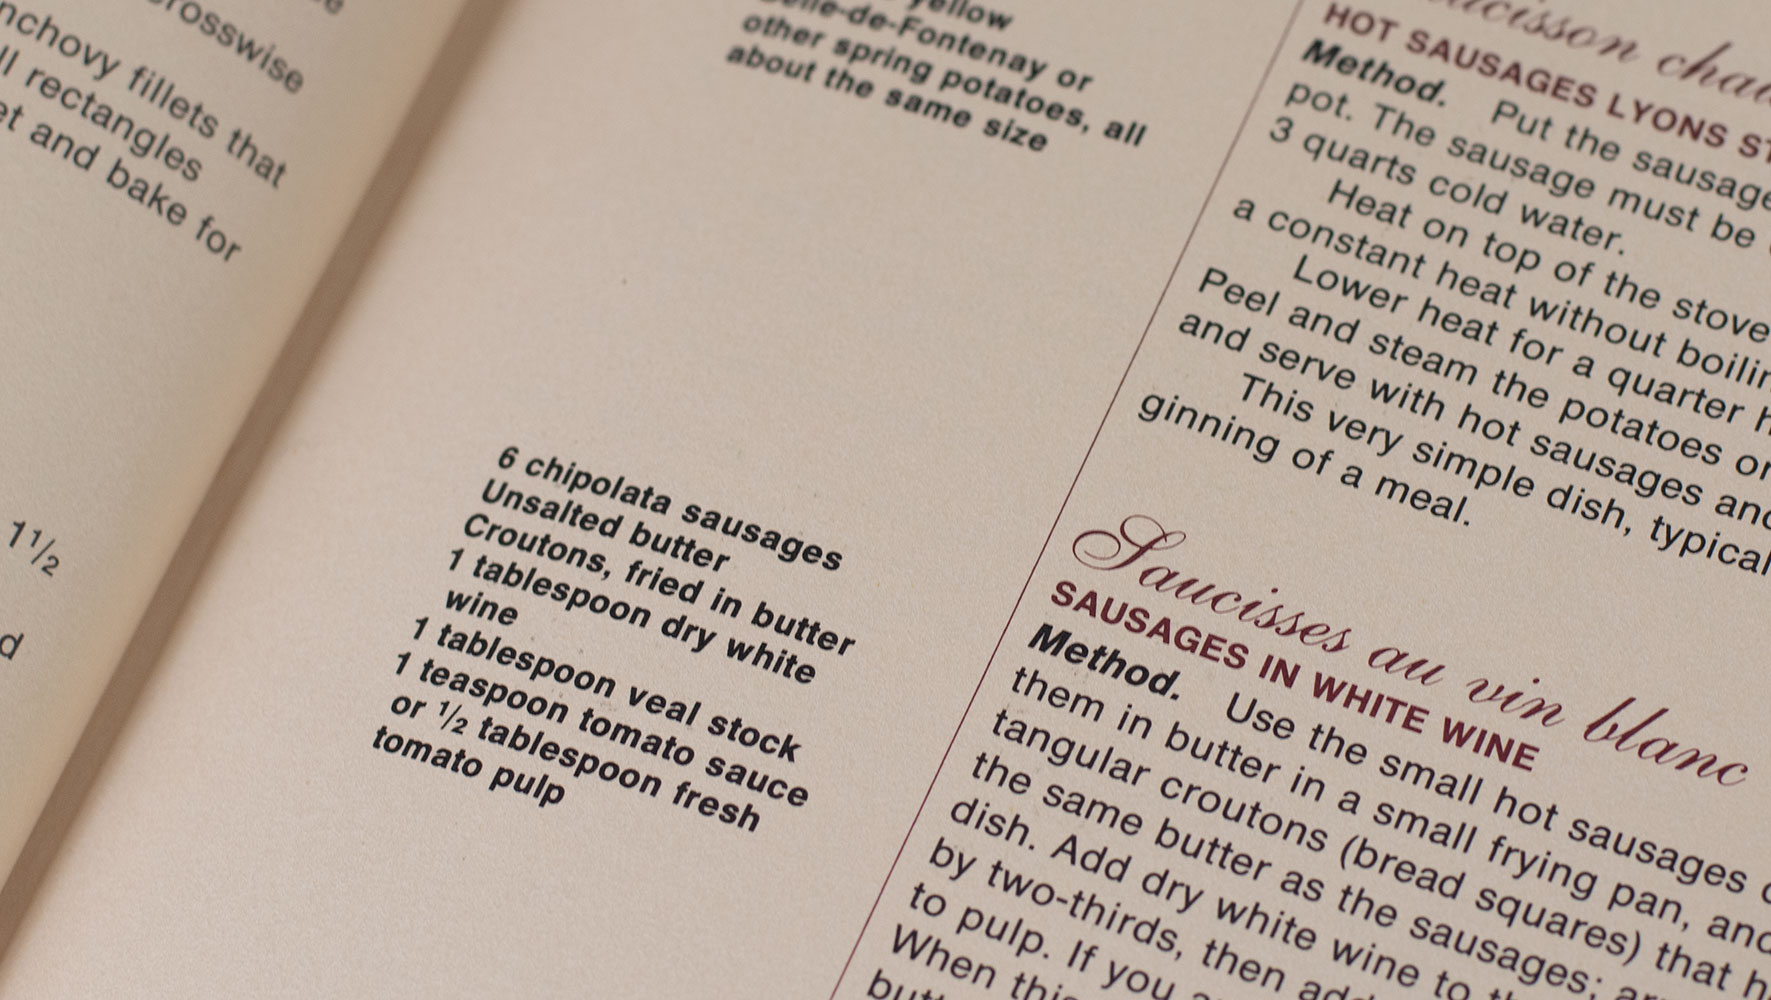 crosswise
anchovy fillets that
rectangles
and bake for
1½
yellow
Belle-de-Fontenay or
other spring potatoes, all
about the same size
6 chipolata sausages
Unsalted butter
Croutons, fried in butter
1 tablespoon dry white
wine
1 tablespoon veal stock
1 teaspoon tomato sauce
or ½ tablespoon fresh
tomato pulp
HOT SAUSAGES LYONS
Method. Put the sausage
pot. The sausage must be
3 quarts cold water.
Heat on top of the stove
a constant heat without
Lower heat for a quarter
Peel and steam the potatoes
and serve with hot sausages
This very simple dish, typical
ginning of a meal.
Saucisses au vin blanc
SAUSAGES IN WHITE WINE
Method. Use the small hot sausages
them in butter in a small frying pan,
tangular croutons (bread squares) that
the same butter as the sausages;
dish. Add dry white wine to
by two-thirds, then
to pulp. If you
When this